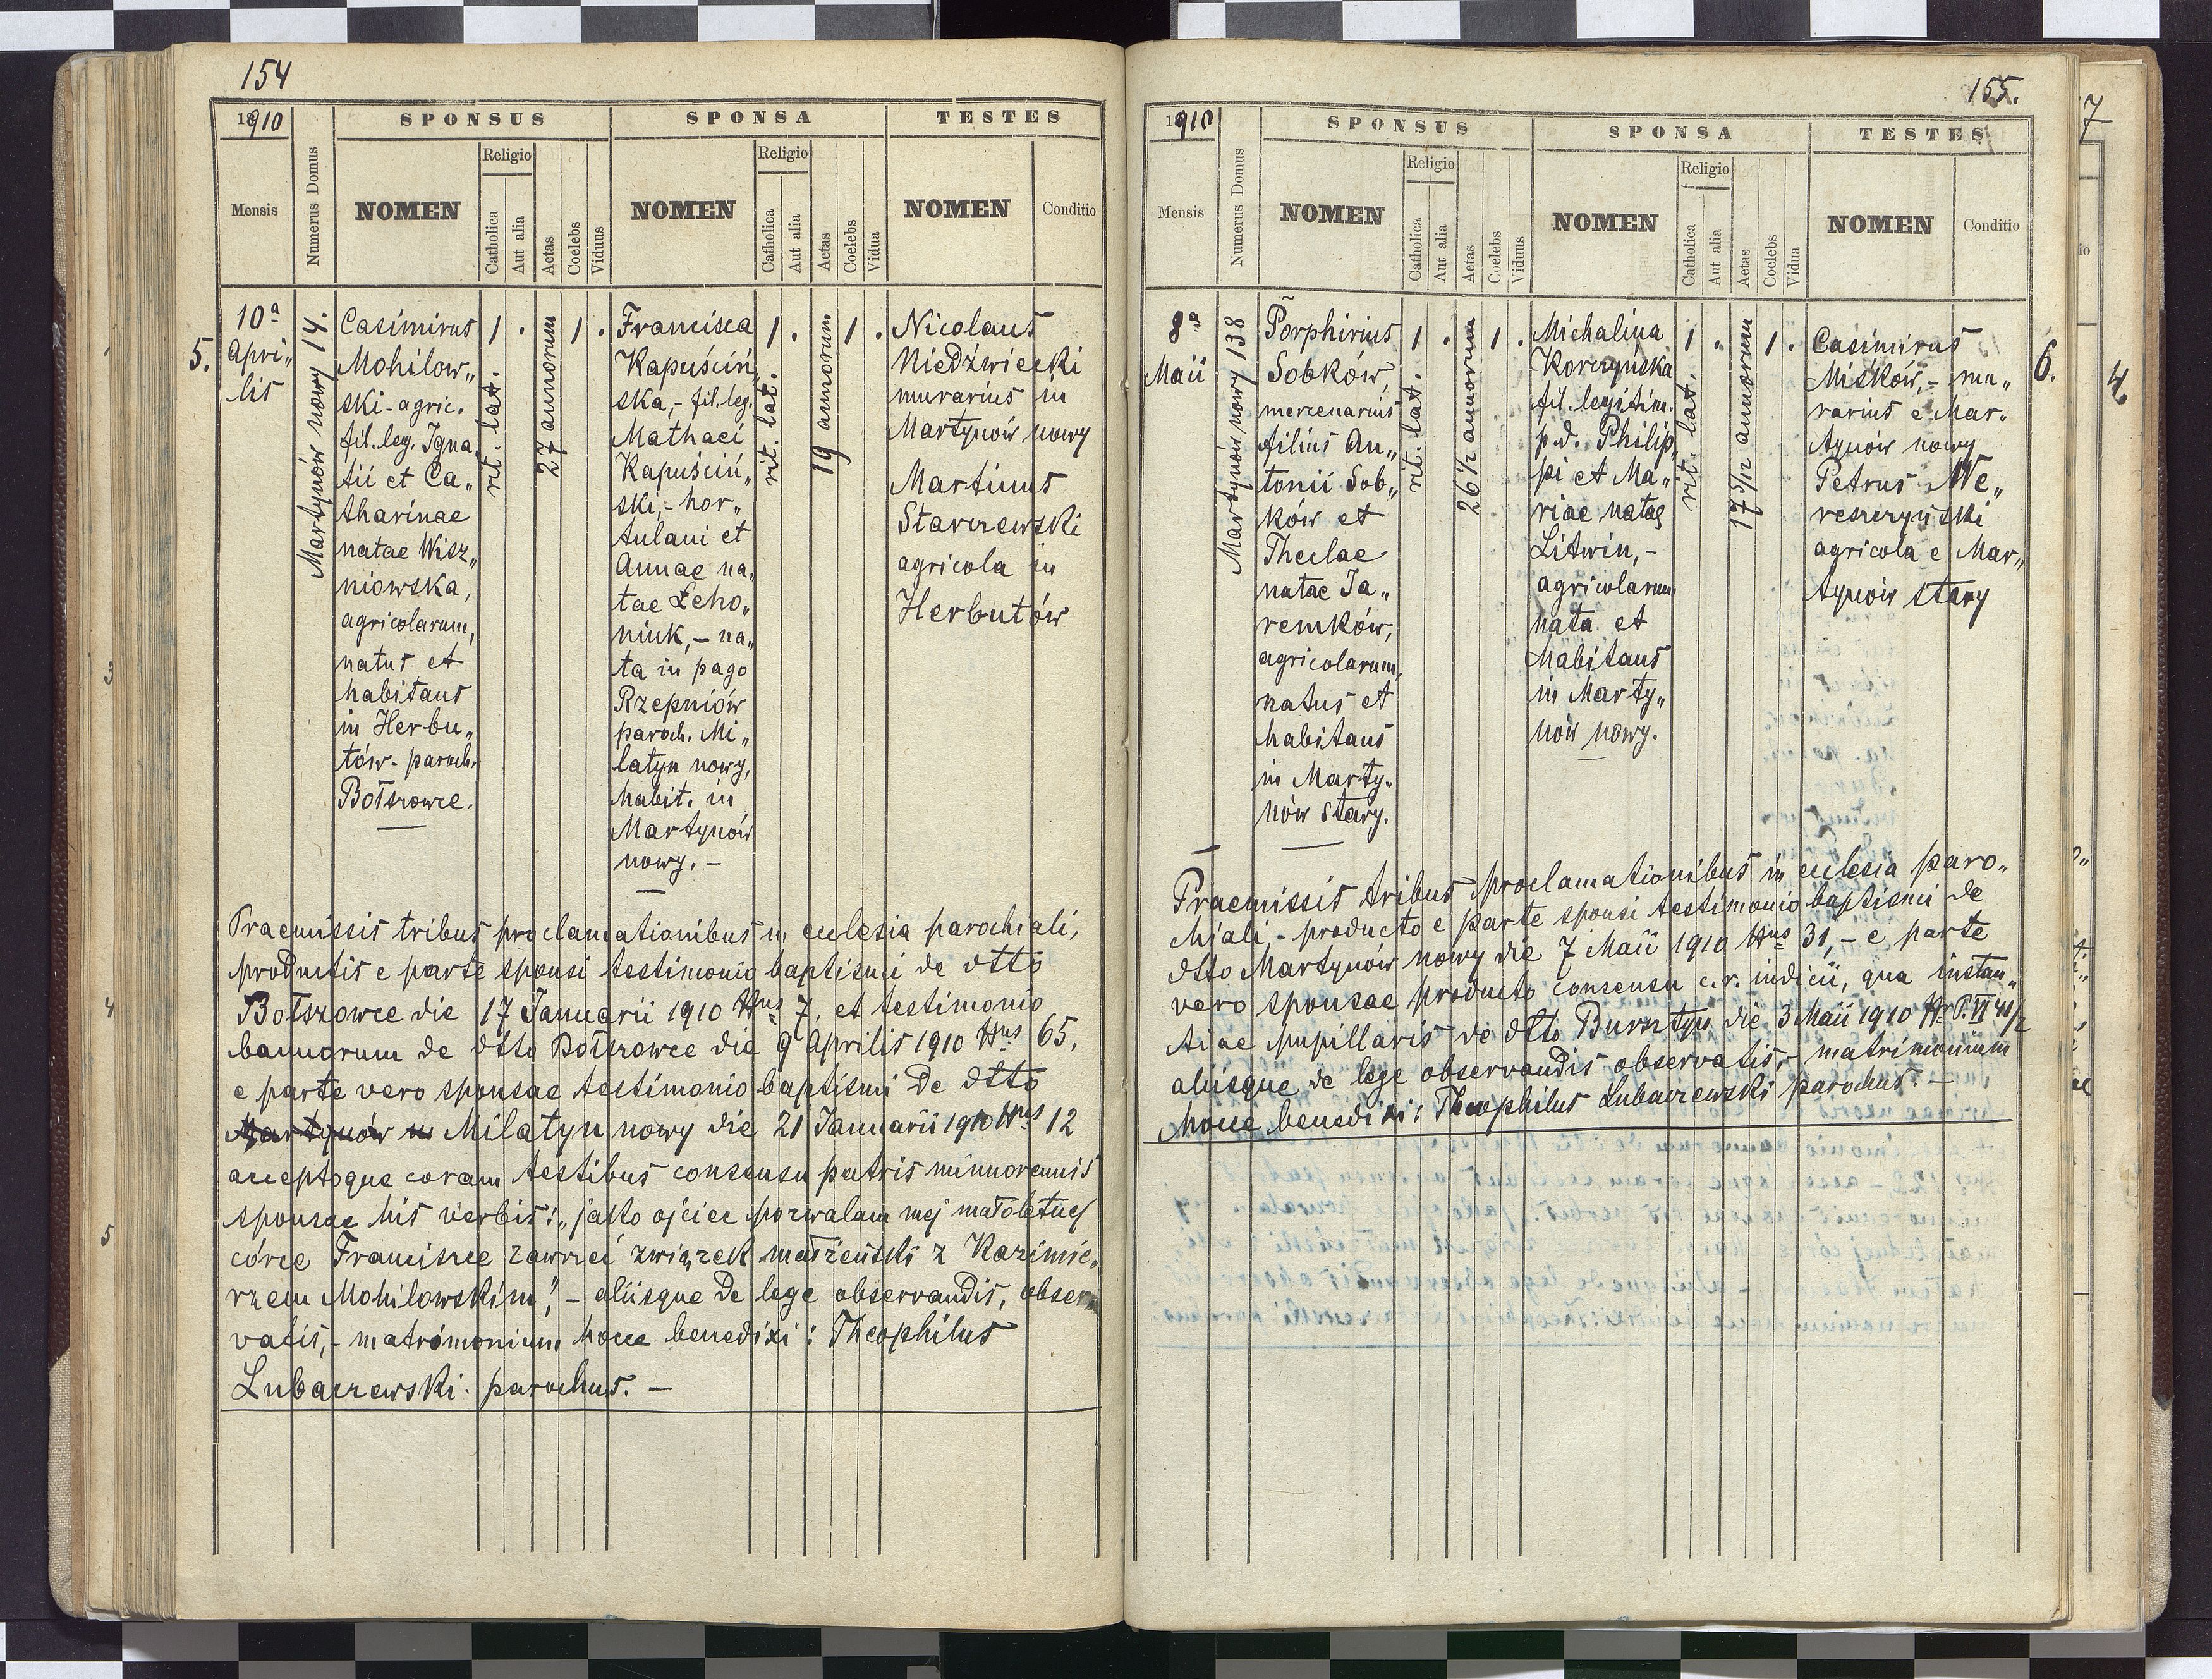 154
1910
SPONSUS
SPONSA
TESTES
Mensis
Numerus Domus
NOMEN
Religio
Catholica
Aut alia
Aetas
Coelebs
Viduus
NOMEN
Religio
Catholica
Aut alia
Aetas
Coelebs
Vidua
NOMEN
Conditio
5.
10ª
Apri„
lis
Martynów nowy 14.
Casimirus
Mohilow„
ski - agric.
fil. leg. Igna„
tii et Ca„
tharinae
natae Wisz„
niowska,
agricolarum,
natus et
habitans
in Herbu„
tów - paroch.
Bołszowce.
1
.
rit. lat.
27 annorum
1
.
Francisca
Kapuściń„
ska, - fil. leg.
Mathaei
Kapuściń„
ski, - hor„
tulani et
Annae na„
tae Łeho„
niuk, - na„
ta in pago
Rzepniów
paroch. Mi„
latyn nowy,
habit. in
Martynów
nowy. -
1
.
rit. lat.
19 annorum
1
.
Nicolaus
Niedźwiecki
murarius in
Martynów nowy
Martinus
Starczewski
agricola in
Herbutów
Praemissis tribus proclamationibus in ecclesia parochiali,
productis e parte sponsi testimonio baptismi de dtto
Bołszowce die 17 Januarii 1910 Nus 7, et testimonio
bannorum de dtto Bołszowce die 9 Aprilis 1910 Nus 65,
e parte vero sponsae testimonio baptismi de dtto
Martynów n Milatyn nowy die 21 Januarii 1910 Nus 12
acceptoque coram testibus consensu patris minnorennis
sponsae his verbis: „jako ojciec pozwalam mej małoletniej
córce Franciszce zawrzeć związek małżeński z Kazimie„
rzem Mohilowskim", - aliisque de lege observandis, obser„
vatis, - matrimonium hocce benedixi: Theophilus
Lubaczewski. parochus. -
155.
1910
SPONSUS
SPONSA
TESTES
Mensis
Numerus Domus
NOMEN
Religio
Catholica
Aut alia
Aetas
Coelebs
Viduus
NOMEN
Religio
Catholica
Aut alia
Aetas
Coelebs
Vidua
NOMEN
Conditio
8ª
Maii
Martynów nowy 138
Porphirius
Sobków,
mercenarius
filius An„
tonii Sob„
ków et
Theclae
natae Ja„
remków,
agricolarum,
natus et
habitans
in Marty„
nów stary.
1
.
rit. lat.
26 1/2 annorum
1
.
Michalina
Korczyńska
fil. legitim.
p. d. Philip„
pi et Ma„
riae natae
Litwin, -
agricolarum
nata et
habitans
in Marty„
nów nowy.
1
.
rit. lat.
17 5/12 annorum
1
.
Casimirus
Miśków, - mu„
rarius e Mar„
tynów nowy
Petrus We„
reszczyński
agricola e Mar„
tynów stary
6.
Praemissis tribus proclamationibus in ecclesia paro„
chiali, - producto e parte sponsi testimonio baptismi de
dtto Martynów nowy die 7 Maii 1910 Nus 31, - e parte
vero sponsae producto consensu c. r. iudicii, qua instan„
tiae pupillaris de dtto Bursztyn die 3 Maii 1910
aliisque de lege observandis observatis, - matrimonium
hocce benedixi: Theophilus Lubaczewski parochus. -
7
4.
3
4
5